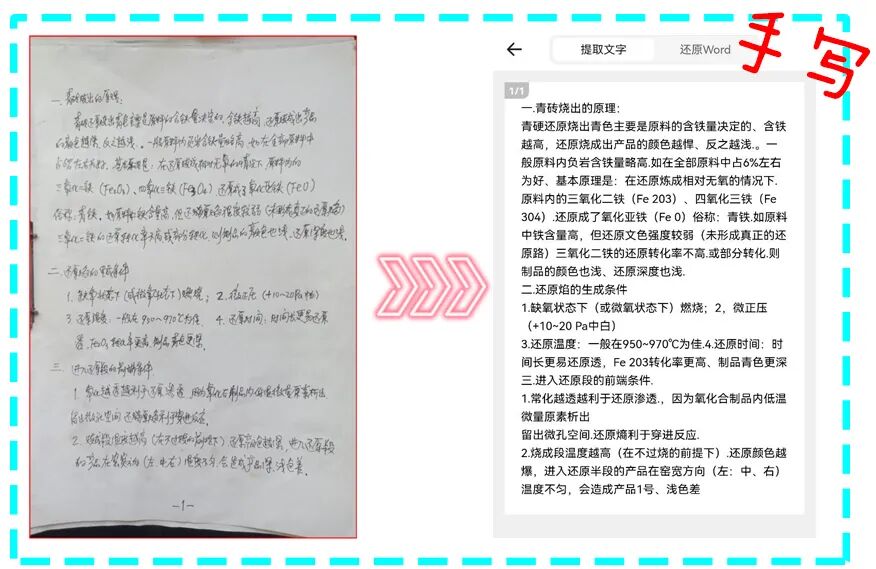 一.青砖烧出的原理:
青砖还原烧出青色主要是原料的含铁量决定的、含铁越高,还原烧成出产品
的颜色越 反之越浅.。一般原料内 含铁量略高.如在全部原料中
占6%左右为好、基本原理是:在还原烧成相对无氧的情况下.原料内的
三氧化二铁(Fe₂O₃)、四氧化三铁(Fe₃O₄)还原成了氧化亚铁(FeO)
俗称:青铁.如原料中铁含量高,但还原 强度较弱(未形成真正的还原 )
三氧化二铁的还原转化率不高或部分转化.则制品的颜色也浅、还原深度也浅.
二.还原焰的生成条件
1.缺氧状态下(或微氧状态下)燃烧;2,微正压(+10~20Pa )
3.还原温度:一般在950~970℃为佳.4.还原时间:时间长更易还原
透,Fe₂O₃转化率更高、制品青色更深.
三.进入还原段的前端条件
1.氧化越透越利于还原渗透.,因为氧化合制品内低温微量原素析出
留出微孔空间.还原 利于穿进反应.
2.烧成段温度越高(在不过烧的前提下).还原颜色越 ,进入还原段
的产品在窑宽方向(左.中.右)温度不匀,会造成产品 、浅色差.
-1-
手写
提取文字 还原Word
1/1
一.青砖烧出的原理:
青硬还原烧出青色主要是原料的含铁量决定的、含铁
越高,还原烧成出产品的颜色越悍、反之越浅.。一
般原料内负岩含铁量略高.如在全部原料中占6%左右
为好、基本原理是:在还原炼成相对无氧的情况下.
原料内的三氧化二铁(Fe 203)、四氧化三铁(Fe
304).还原成了氧化亚铁(Fe 0)俗称:青铁.如原料
中铁含量高,但还原文色强度较弱(未形成真正的还
原路)三氧化二铁的还原转化率不高.或部分转化.则
制品的颜色也浅、还原深度也浅.
二.还原焰的生成条件
1.缺氧状态下(或微氧状态下)燃烧;2,微正压
(+10~20 Pa中白)
3.还原温度:一般在950~970℃为佳.4.还原时间:时
间长更易还原透,Fe 203转化率更高、制品青色更深
三.进入还原段的前端条件.
1.常化越透越利于还原渗透.,因为氧化合制品内低温
微量原素析出
留出微孔空间.还原熵利于穿进反应.
2.烧成段温度越高(在不过烧的前提下).还原颜色越
爆,进入还原半段的产品在窑宽方向(左:中、右)
温度不匀,会造成产品1号、浅色差